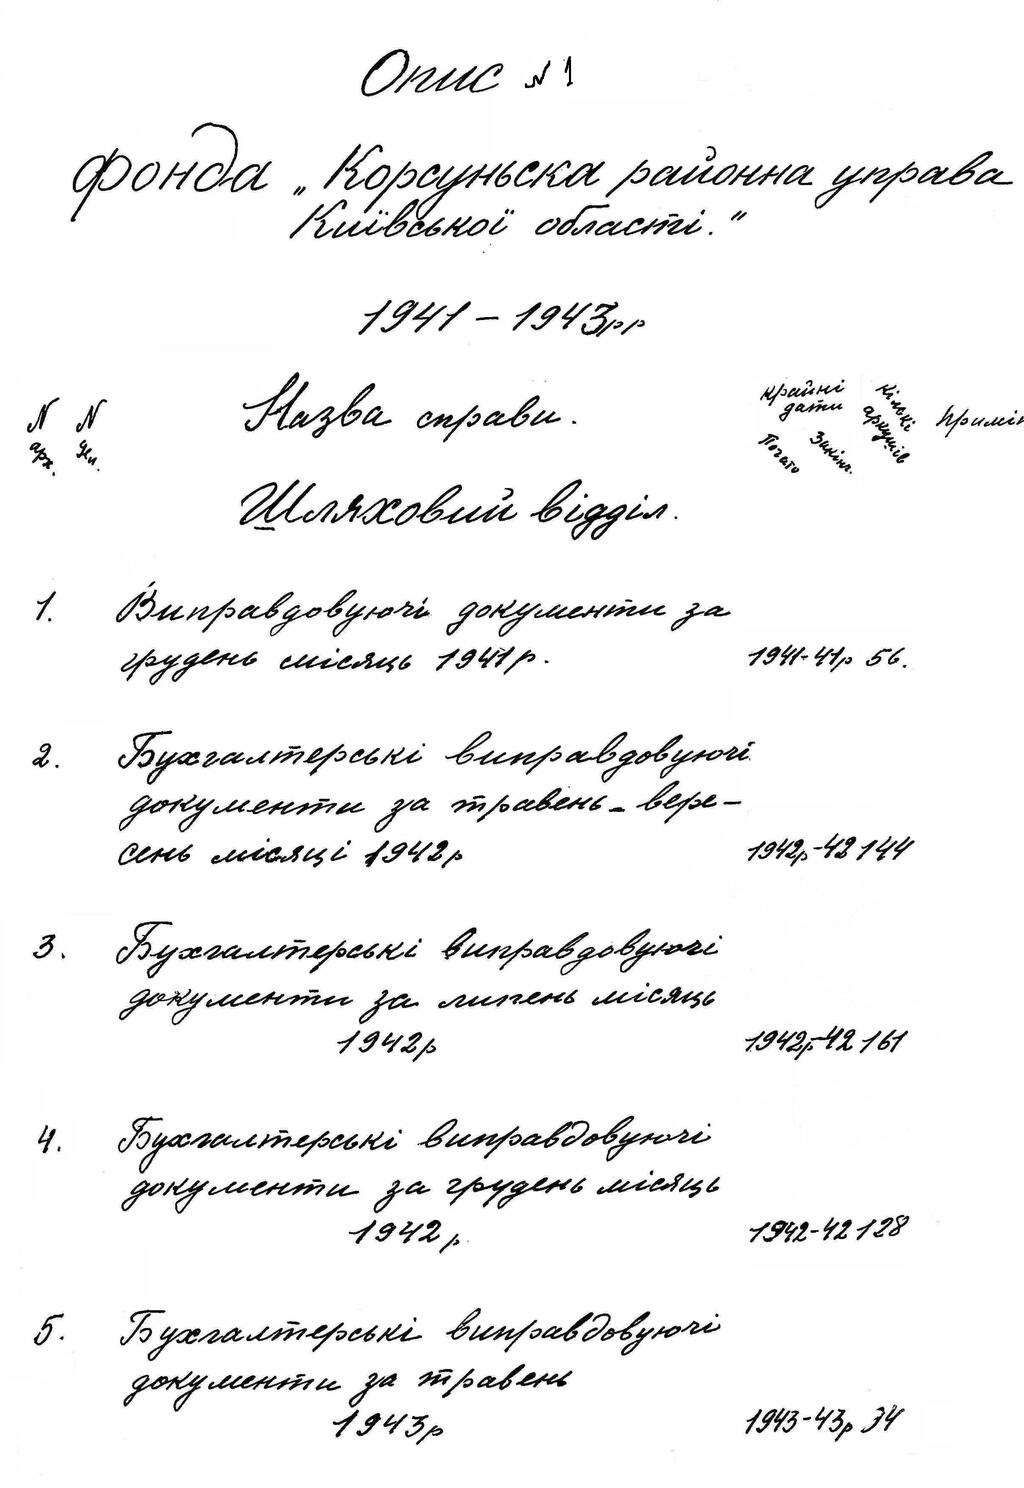 Опис N 1
фонда „Корсуньска районна управа
Київської області."
1941 – 1943рр
N арх.
N
Назва справи.
крайні дати
Почато
Закінч.
Кількі аркушів
Примін
Шляховий відділ.
1. Виправдовуючі документи за
грудень місяць 1941р. 1941-41р 56.
2. Бухгалтерські виправдовуючі
документи за травень-вере-
сень місяці 1942р 1942р-42 144
3. Бухгалтерські виправдовуючі
документи за липень місяць
1942р 1942р-42 161
4. Бухгалтерські виправдовуючі
документи за грудень місяць
1942р. 1942-42 128
5. Бухгалтерські виправдовуючі
документи за травень
1943р 1943-43р 34